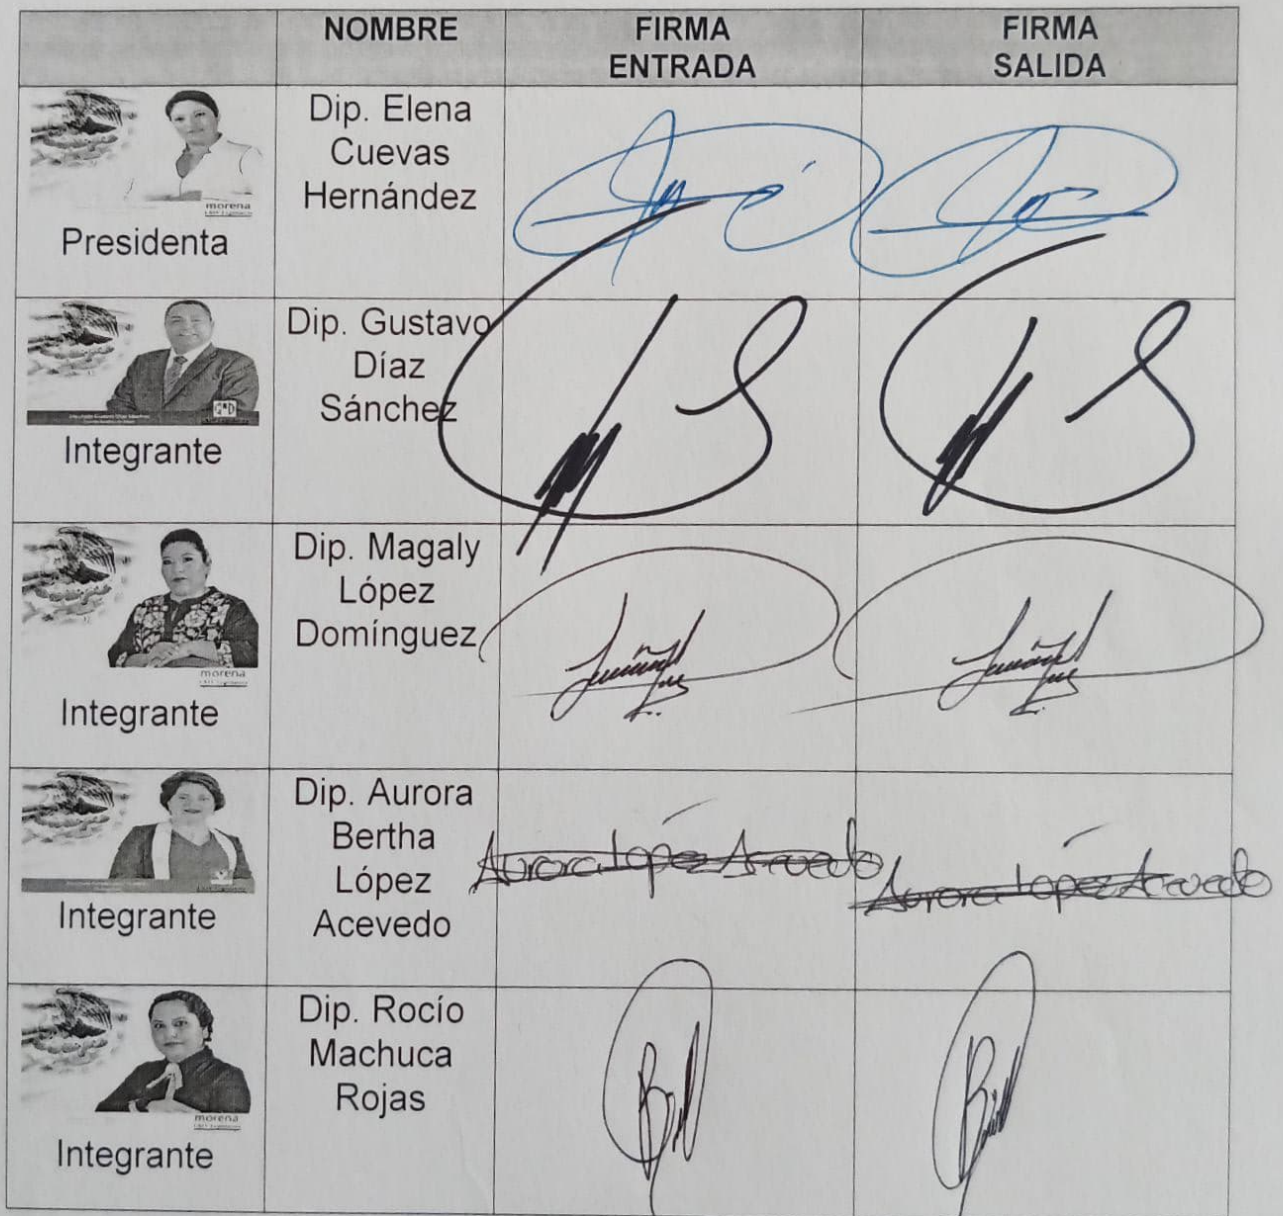 NOMBRE
FIRMA
ENTRADA
FIRMA
SALIDA
morena
Presidenta
Dip. Elena
Cuevas
Hernández
Integrante
Dip. Gustavo
Díaz
Sánchez
morena
Integrante
Dip. Magaly
López
Domínguez
Integrante
Dip. Aurora
Bertha
López
Acevedo
Aurora López Acevedo
Aurora López Acevedo
morena
Integrante
Dip. Rocío
Machuca
Rojas